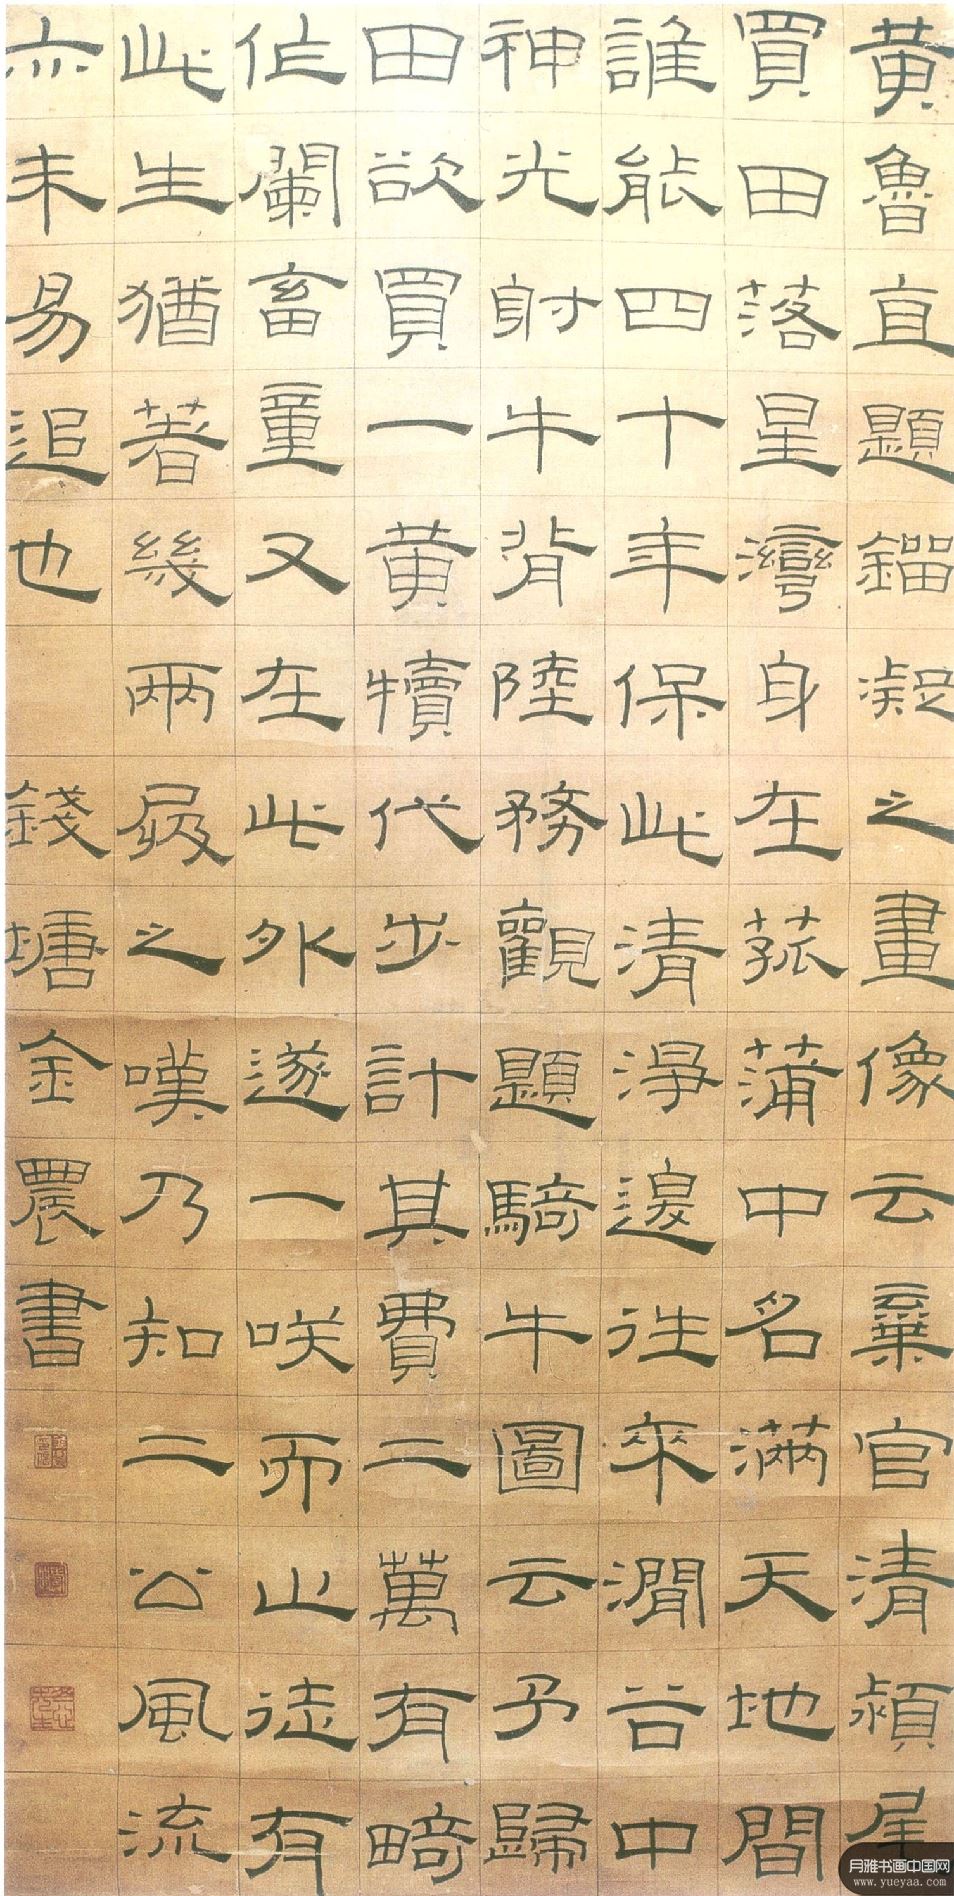 黃魯直題鎦凝之畫像云棄官清潁尾
買田落星灣身在菰蒲中名滿天地間
誰能四十年保此清淨邊往來澗谷中
神光射牛背陸務觀題騎牛圖云予歸
田欲買一黃犢代步計其費二萬有畸
作闌畜童又在此外遂一咲而止徒有
此生猶著幾兩屐之嘆乃知二公風流
亦未易追也 錢塘金農書
月雅书画中国网
www.yueyaa.com